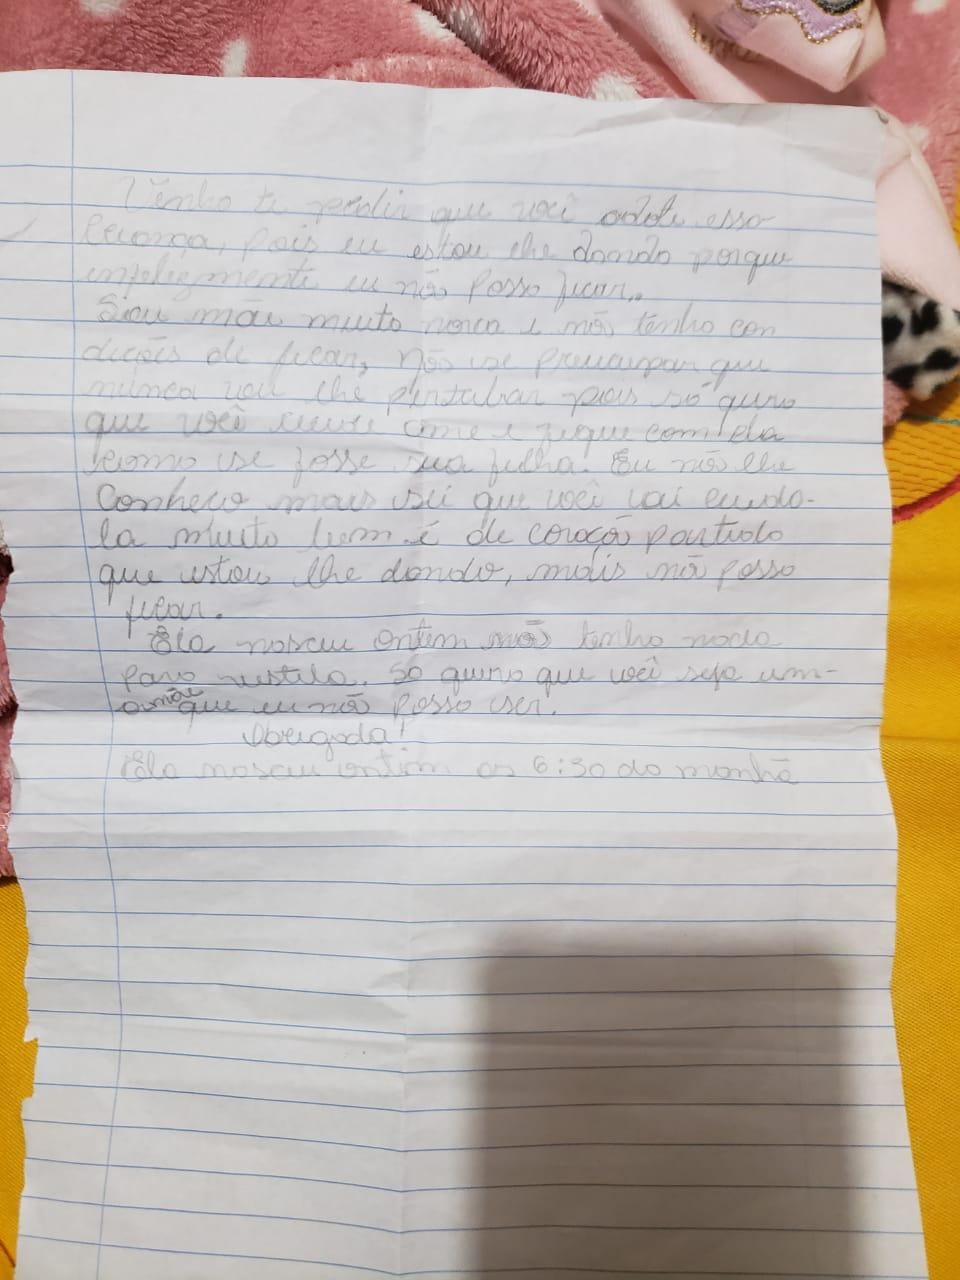 Venho te pedir que você adote essa
Criança, pois eu estou lhe dando porque
infelizmente eu não Posso ficar..
Sou mãe muito nova e não tenho con
dições de ficar, Não se preucupar que
nunca vou lhe pertubar pois só quero
que você cuide ame e fique com ela
como se fosse sua filha. Eu não lhe
Conheco mais sei que você vai cuida-
la muito bem é de coraçã partido
que estou lhe dando, mais nã posso
ficar.
Ela nasceu ontem não tenho nada
para vestila. Só quero que você seja um-
a mãe que eu não posso ser.
Obrigada!
Ela nasceu ontem as 6:30 da manhã